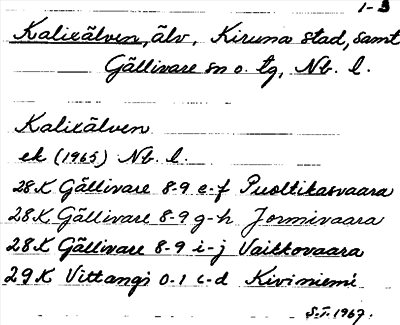 1-3
Kalixälven, älv, Kiruna stad, samt
Gällivare sn o. tg, Nb. l.
Kalixälven
ek (1965) Nb. l.
28K Gällivare 8-9 e-f Puoltikasvaara
28K Gällivare 8-9 g-h Jormivaara
28K Gällivare 8-9 i-j Vaikkovaara
29K Vittangi 0-1 c-d Kiviniemi
S.I. 1967.